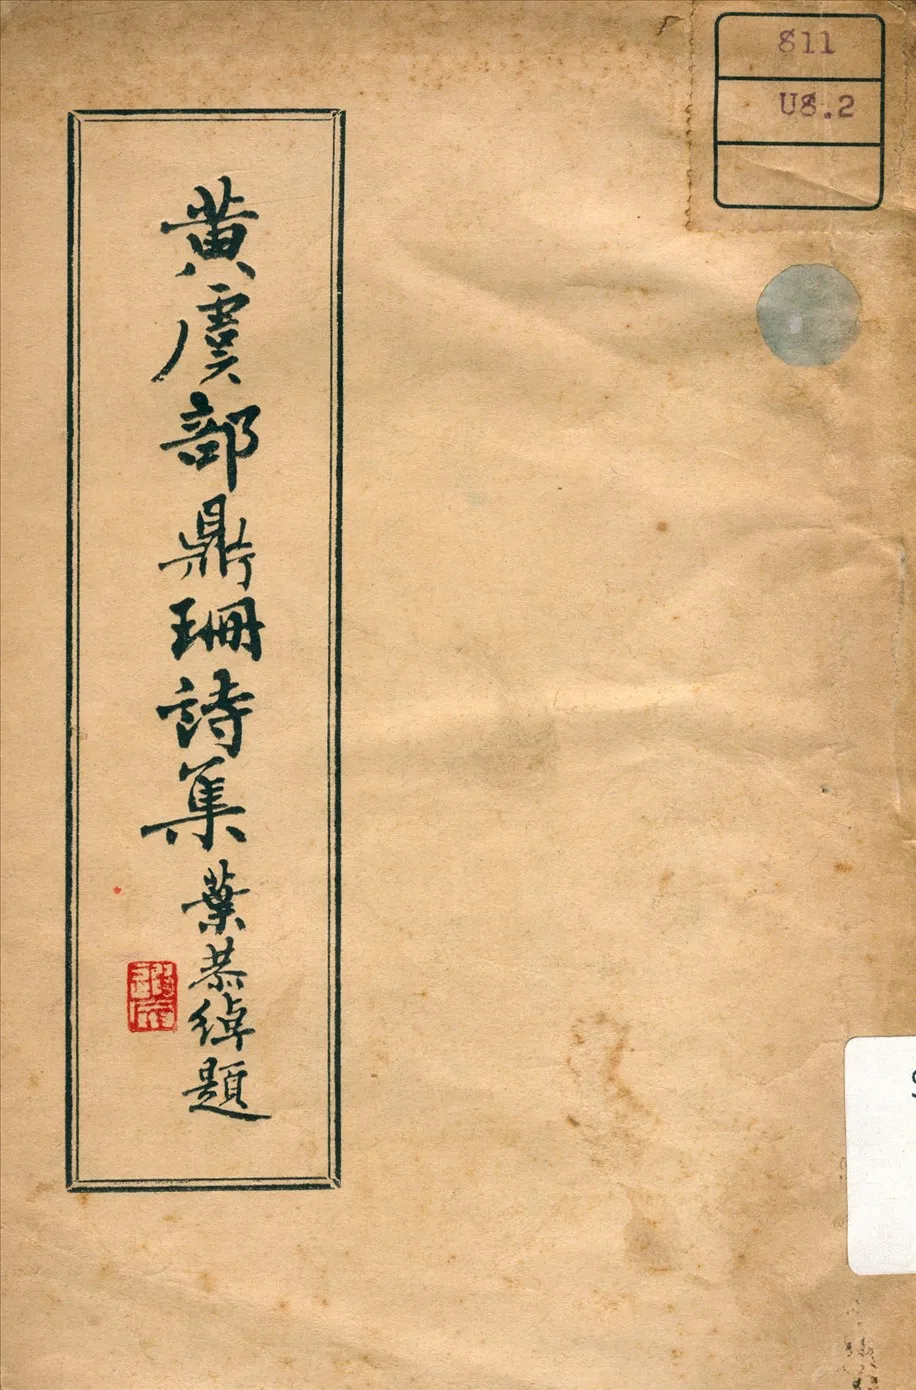 811
U8.2
黄虞部鼎珊詩集
葉恭綽題
S